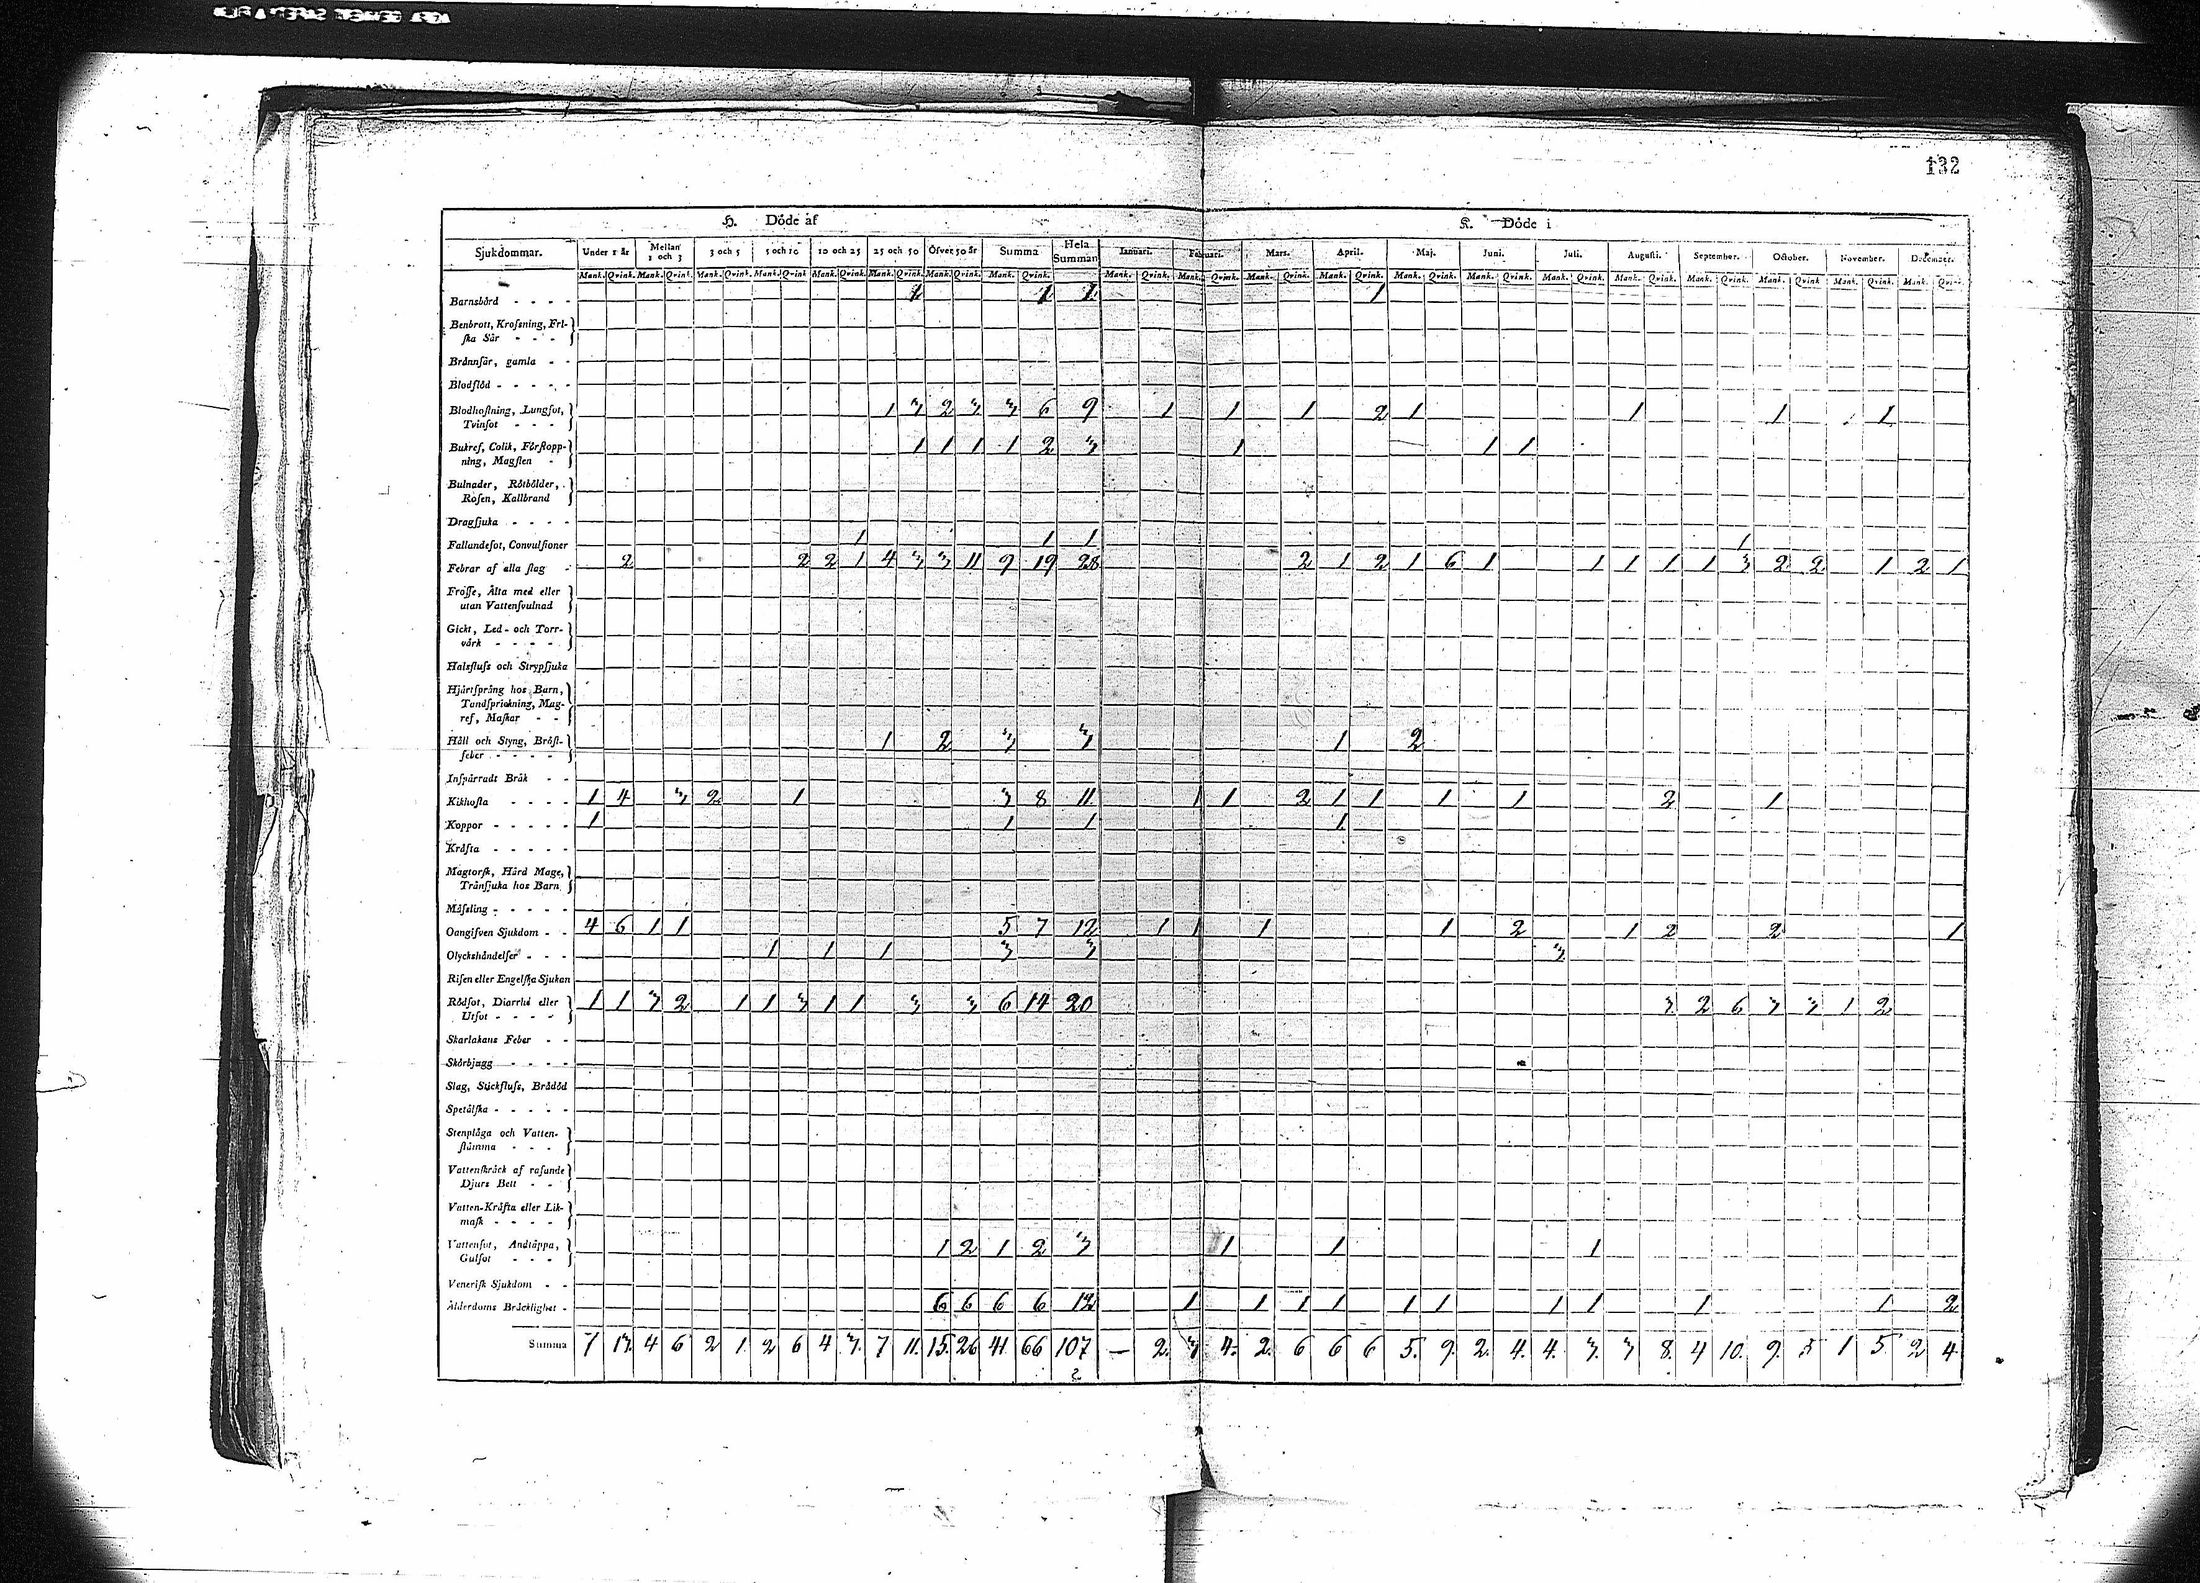 132
H. Döde af K. Döde i
Sjukdommar. Under 1 år Mellan 1 och 3 3 och 5 5 och 10 10 och 25 25 och 50 Öfver 50 år Summa Hela Summan Ianuari. Februari. Mars. April. Maj. Juni. Juli. Augusti. September. October. November. December.
Mank. Qvink. Mank. Qvink. Mank. Qvink. Mank. Qvink Mank. Qvink. Mank. Qvink. Mank. Qvink. Mank. Qvink. Mank. Qvink. Mank. Qvink. Mank. Qvink. Mank. Qvink. Mank. Qvink. Mank. Qvink. Mank. Qvink. Mank. Qvink. Mank. Qvink. Mank. Qvink Mank. Qvink. Mank. Qvink.
Barnsbörd - - - - 1 1 1 1
Benbrott, Krossning, Fri-
ska Sår - - - -
Brännsår, gamla - -
Blodflöd - - - - -
Blodhostning, Lungsot, 1 3 2 3 3 6 9 1 1 1 2 1 1 1 1
Tvinsot - - -
Bukref, Colik, Förstopp- 1 1 1 1 2 3 1 1 1
ning, Magsten -
Bulnader, Rötbölder,
Rosen, Kallbrand
Dragsjuka - - - -
Fallandesot, Convulsioner 1 1 1 1
Febrar af alla slag - 2 2 2 1 4 3 3 11 9 19 28 2 1 2 1 6 1 1 1 1 1 3 2 2 1 2 1
Frosse, Älta med eller
utan Vattensvulnad
Gickt, Led- och Torr-
värk - - - -
Halsfluss och Strypsjuka
Hjärtsprång hos Barn,
Tandsprickning, Mag-
ref, Maskar - -
Håll och Styng, Bröst- 1 2 3 3 1 2
feber - - - -
Inspärradt Bråk - -
Kikhosta - - - - 1 4 3 2 1 3 8 11 1 1 2 1 1 1 1 2 1
Koppor - - - - - 1 1 1 1
Kräfta - - - - -
Magtorsk, Hård Mage,
Tränsjuka hos Barn
Mässling - - - - -
Oangifven Sjukdom - - 4 6 1 1 5 7 12 1 1 1 1 2 1 2 2 1
Olyckshändelser - - - 1 1 1 3 3 3
Risen eller Engelska Sjukan
Rödsot, Diarrhé eller 1 1 3 2 1 1 3 1 1 3 3 6 14 20 3 2 6 3 3 1 2
Utsot - - - -
Skarlakans Feber - -
Skörbjugg - - - -
Slag, Stickfluss, Brådöd
Spetälska - - - - -
Stenplåga och Vatten-
stämma - - -
Vattenskräck af rasande
Djurs Bett - -
Vatten-Kräfta eller Lik-
mask - - - -
Vattensot, Andtäppa, 1 2 1 2 3 1 1 1
Gulsot - - -
Venerisk Sjukdom - -
Ålderdoms Bräcklighet - 6 6 6 6 12 1 1 1 1 1 1 1 1 1 1 2
Summa 7 13. 4 6 2 1. 2 6 4 3. 7 11. 15. 26 41 66 107 — 2. 3 4. 2. 6 6 6 5. 9. 2. 4. 4. 3. 3 8. 4 10. 9. 5 1 5 2 4.